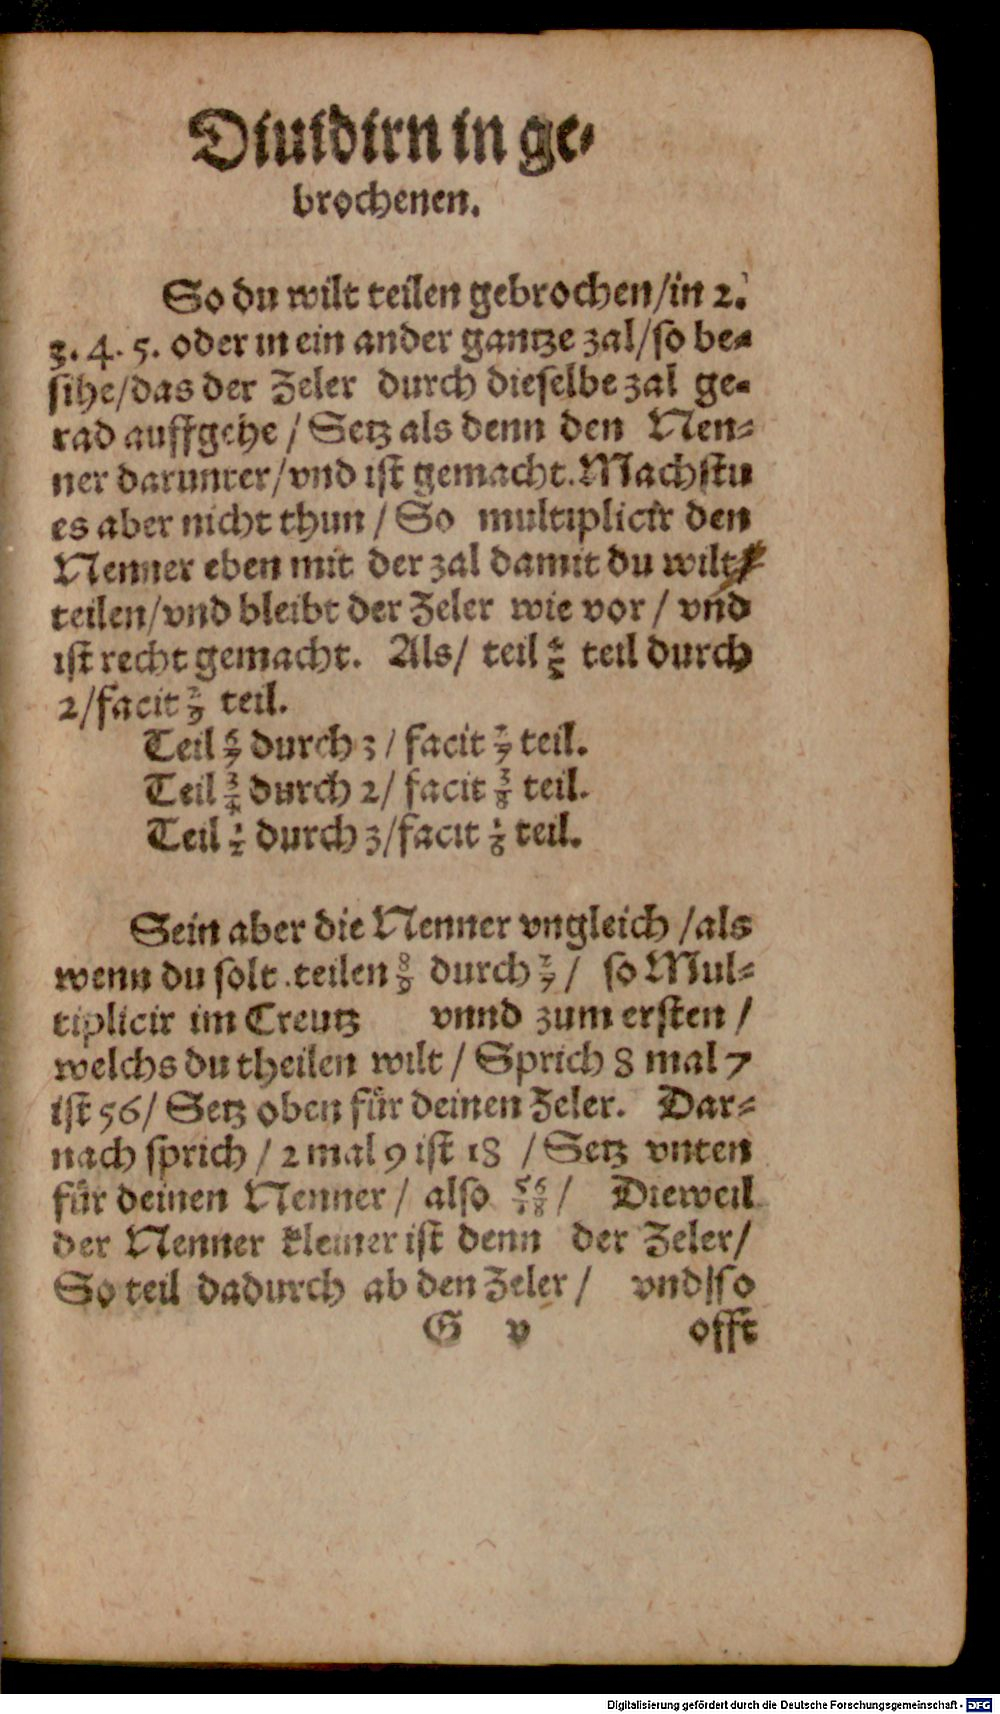 Diuidirn in ge-
brochenen.
So du wilt teilen gebrochen/in 2.
3. 4. 5. oder in ein ander gantze zal/so be-
sihe/das der Zeler durch dieselbe zal ge-
rad auffgehe / Setz als denn den Nen-
ner darunter/vnd ist gemacht. Machstu
es aber nicht thun / So multiplicir den
Nenner eben mit der zal damit du wilt
teilen/vnd bleibt der Zeler wie vor / vnd
ist recht gemacht. Als/ teil teil durch
2/facit teil.
Teil 6/7 durch 3 / facit 2/7 teil.
Teil 3/4 durch 2/ facit 3/8 teil.
Teil 1/2 durch 3/facit 1/6 teil.
Sein aber die Nenner vngleich /als
wenn du solt teilen 8/9 durch 2/7 / so Mul-
tiplicir im Creutz vnnd zum ersten /
welchs du theilen wilt / Sprich 8 mal 7
ist 56/ Setz oben für deinen Zeler. Dar-
nach sprich / 2 mal 9 ist 18 / Setz vnten
für deinen Nenner / also 56/18 / Dieweil
der Nenner kleiner ist denn der Zeler/
So teil dadurch ab den Zeler / vnd so
G v offt
Digitalisierung gefördert durch die Deutsche Forschungsgemeinschaft - DFG